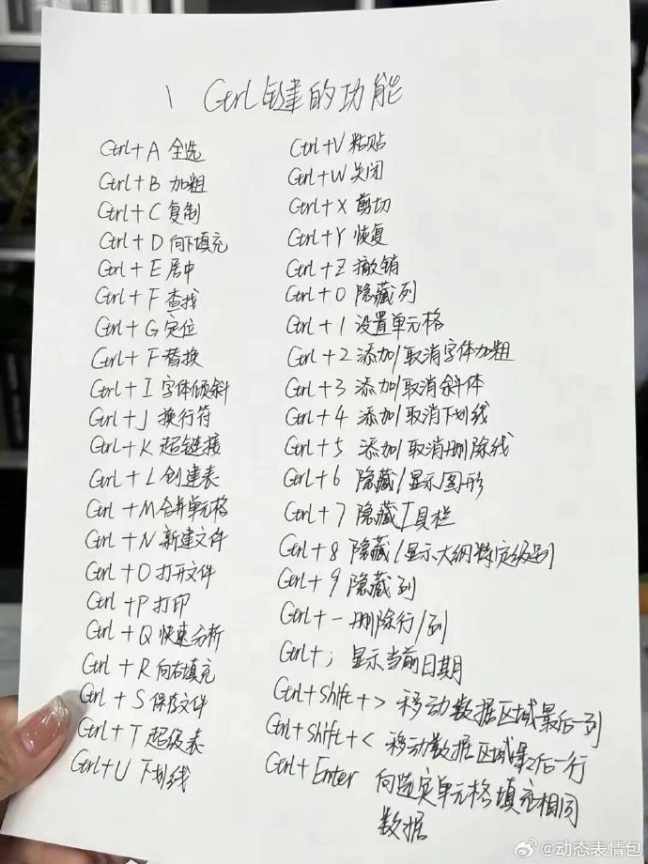 1 Ctrl键的功能
Ctrl+A 全选
Ctrl+B 加粗
Ctrl+C 复制
Ctrl+D 向下填充
Ctrl+E 居中
Ctrl+F 查找
Ctrl+G 定位
Ctrl+F 替换
Ctrl+I 字体倾斜
Ctrl+J 换行符
Ctrl+K 超链接
Ctrl+L 创建表
Ctrl+M 合并单元格
Ctrl+N 新建文件
Ctrl+O 打开文件
Ctrl+P 打印
Ctrl+Q 快速分析
Ctrl+R 向右填充
Ctrl+S 保存文件
Ctrl+T 超级表
Ctrl+U 下划线
Ctrl+V 粘贴
Ctrl+W 关闭
Ctrl+X 剪切
Ctrl+Y 恢复
Ctrl+Z 撤销
Ctrl+0 隐藏列
Ctrl+1 设置单元格
Ctrl+2 添加/取消字体加粗
Ctrl+3 添加/取消斜体
Ctrl+4 添加/取消下划线
Ctrl+5 添加/取消删除线
Ctrl+6 隐藏/显示图形
Ctrl+7 隐藏工具栏
Ctrl+8 隐藏/显示大纲特定级别
Ctrl+9 隐藏列
Ctrl+- 删除行/列
Ctrl+; 显示当前日期
Ctrl+Shift+> 移动数据区域最后一列
Ctrl+Shift+< 移动数据区域最后一行
Ctrl+Enter 向选定单元格填充相同
数据
@动态表情包